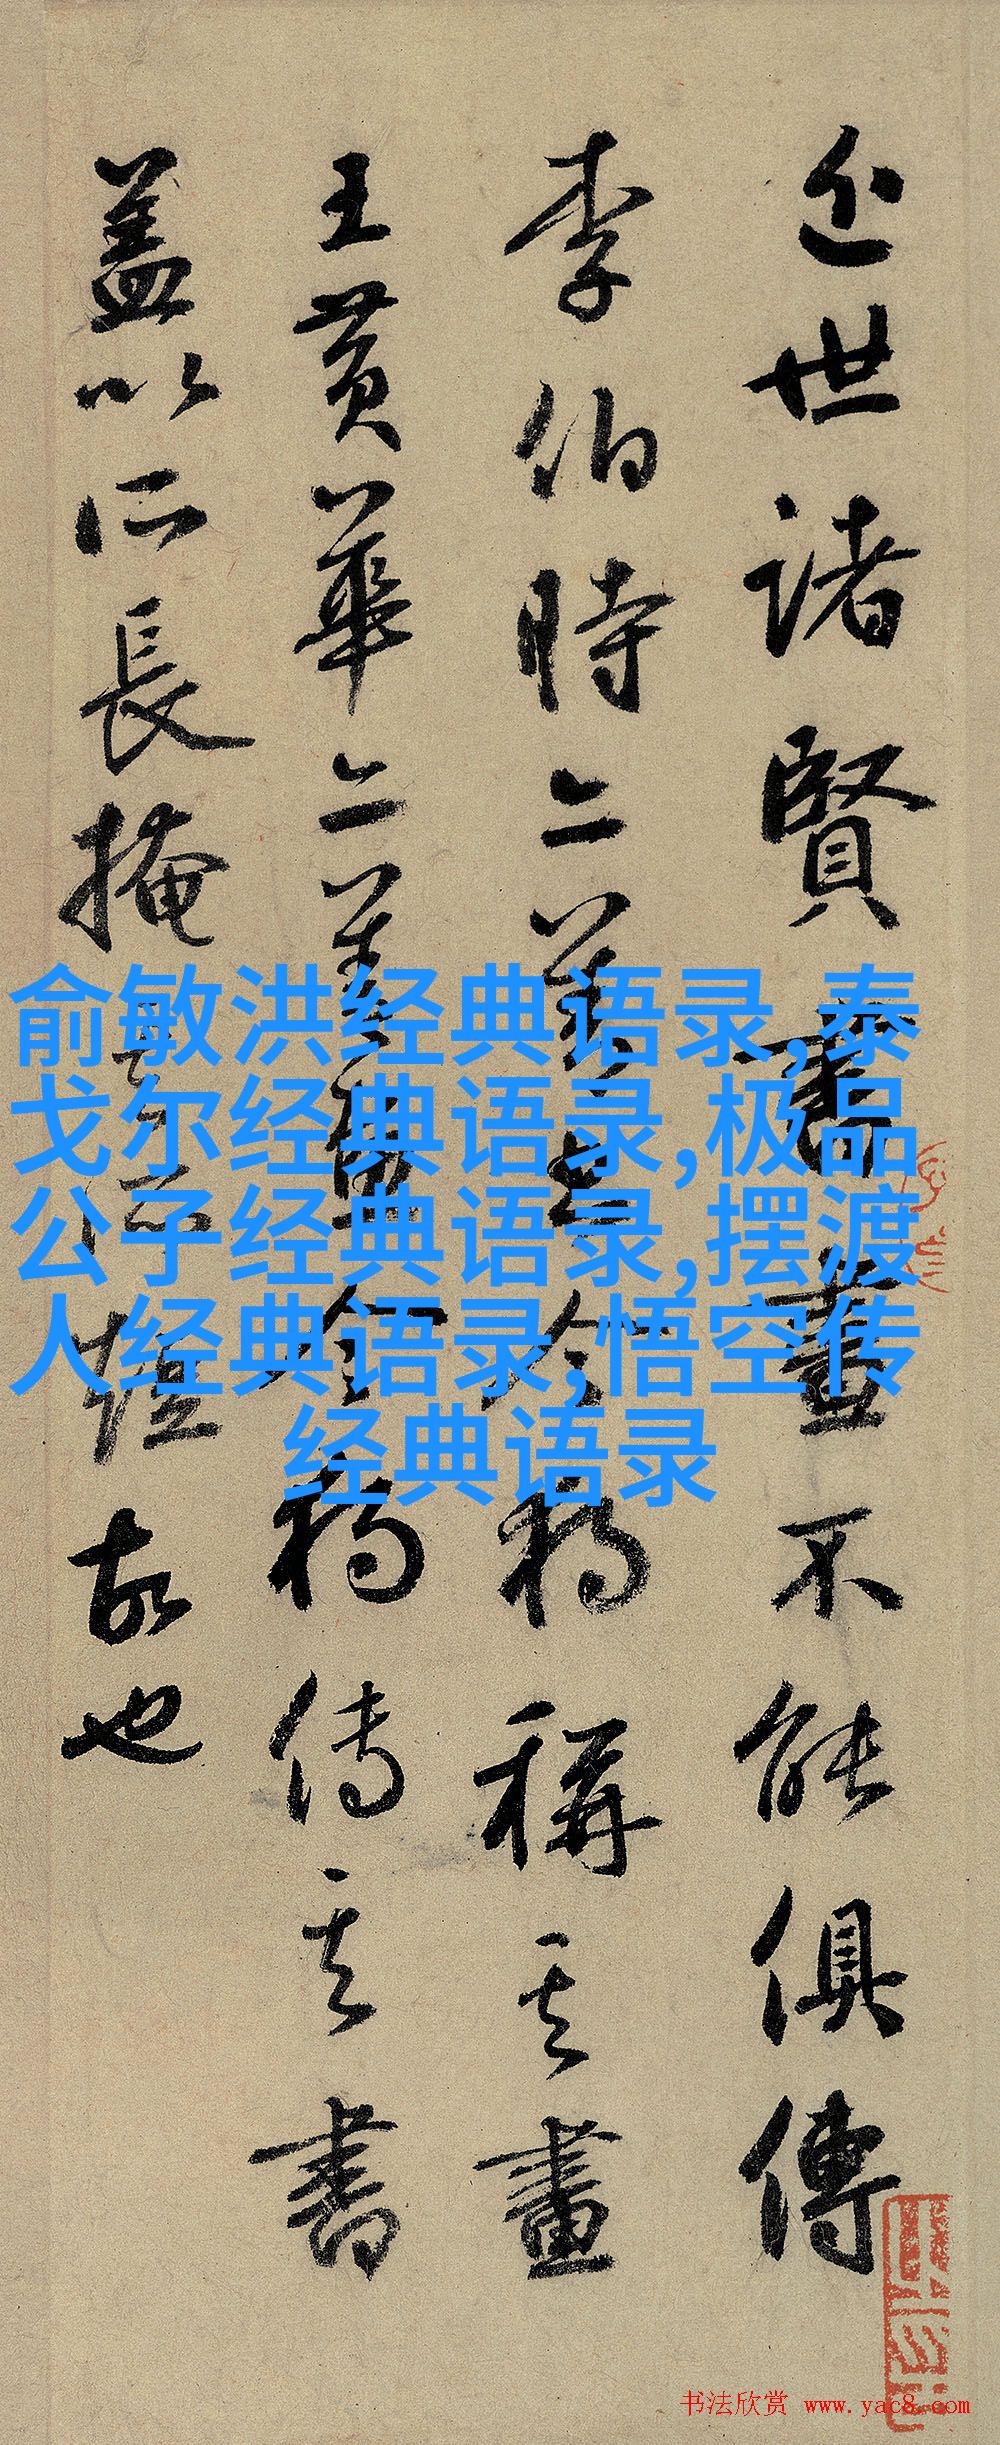 近世諸賢書畫不能俱傳
李伯時二善今獨稱其畫
王黃華二善今獨傳其書
蓋以所長掩其所短故也
俞敏洪经典语录,泰
戈尔经典语录,极品
公子经典语录,摆渡
人经典语录,悟空传
经典语录
书法欣赏 www.yac8.com